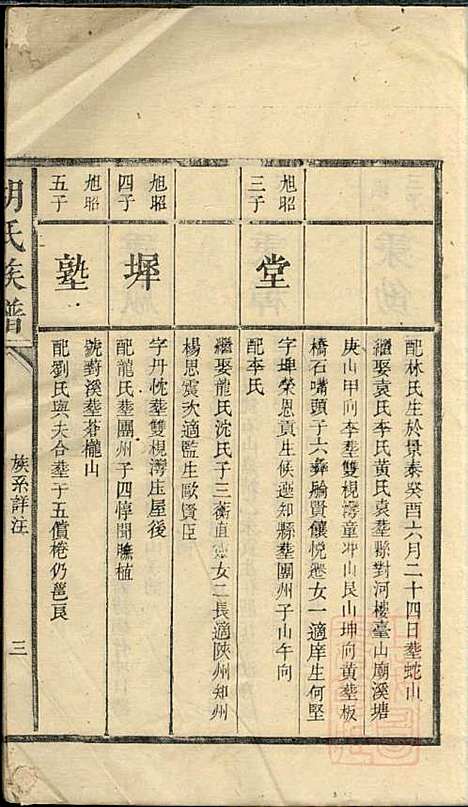 配林氏生於景泰癸酉六月二十四日塟蛇山
繼娶袁氏李氏黃氏袁塟縣對河樓臺山廟溪塘
庚山甲向李塟雙梘灣童冲山艮山坤向黃塟板
橋石嘴頭子六彝騟賢儀悅 女一適庠生何堅
旭昭
三子
堂
字 榮恩貢生候選知縣塟團州子山午向
配李氏
繼娶龍氏沈氏子三衡直 女二長適陝州知州
楊思震次適監生歐賢臣
旭昭
四子
墀
字丹忱塟雙梘灣庄屋後
配龍氏塟團州子四惇聞 植
旭昭
五子
塾
號對溪塟蒼櫳山
配劉氏與夫合塟子五償惓仍邕良
胡氏族譜
族系詳注
三